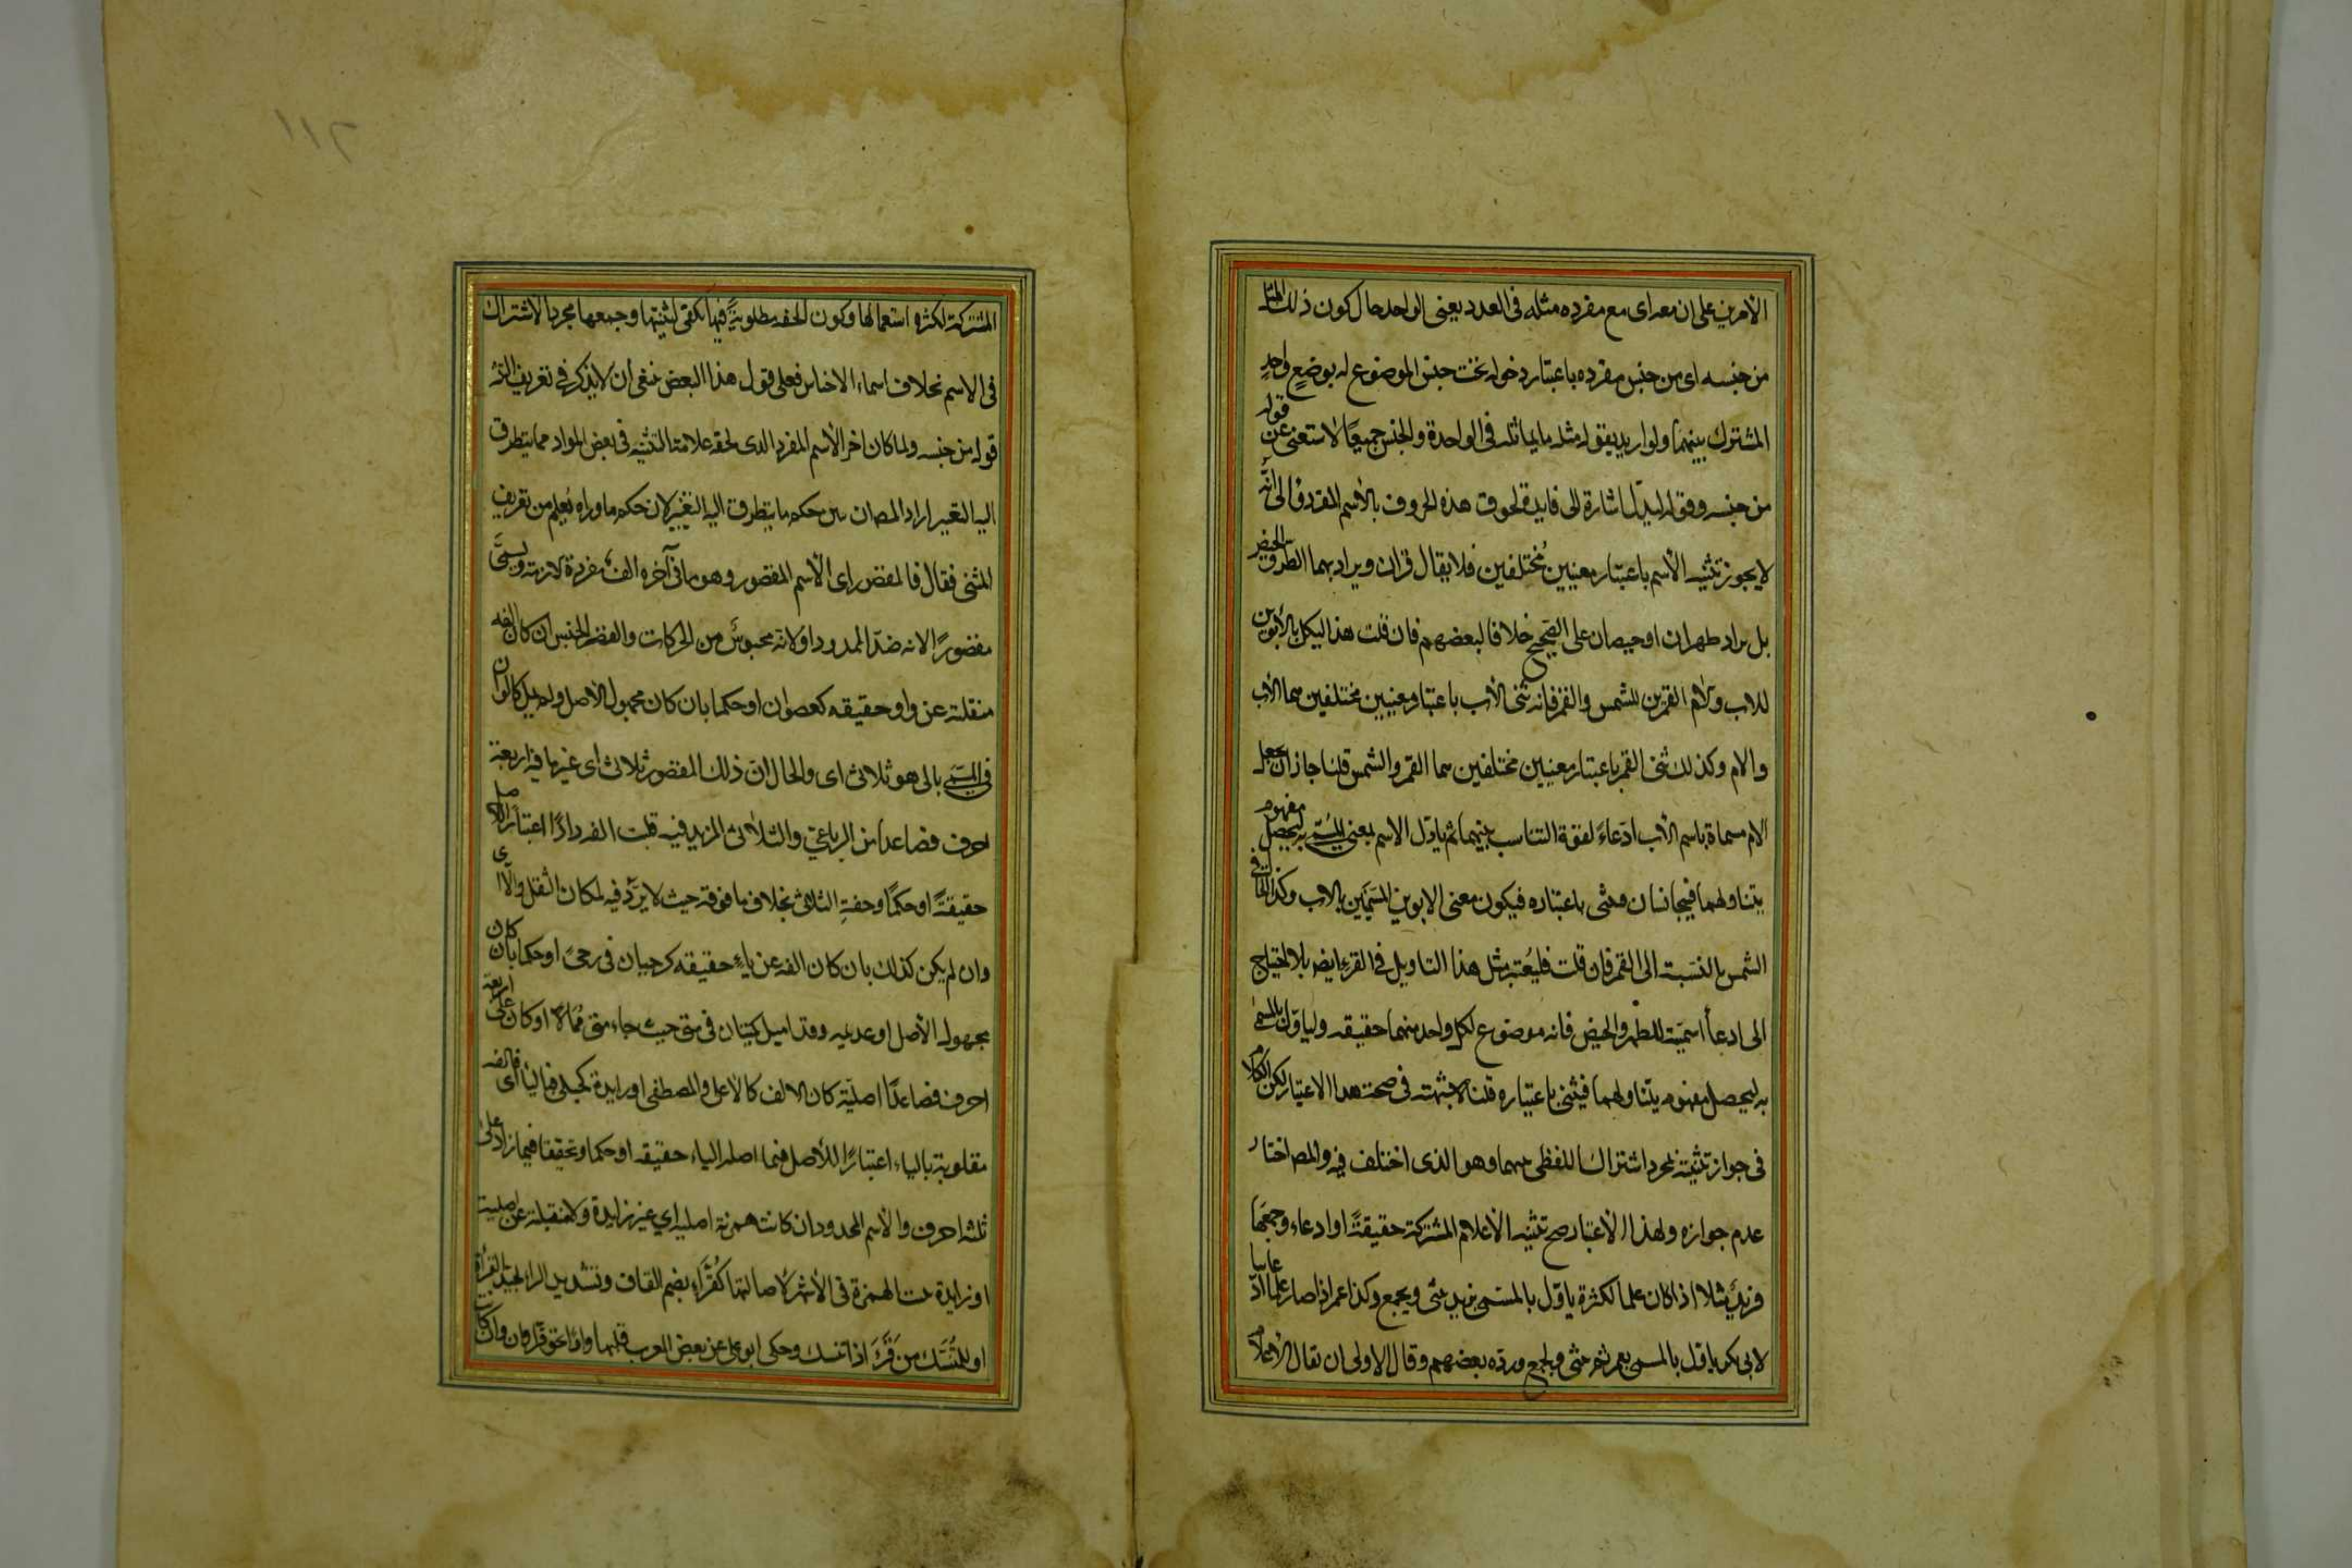 الامرين على ان معه اى مع مفرده مثله فى العدد يعنى الواحد حال كون ذلك المثل
من جنسه اى من جنس مفرده باعتبار دخوله تحت جنس الموضوع له بوضع واحد
المشترك بينهما ولو اريد بقوله مثله ما يماثله فى الواحدة والجنس جميعًا لاستغنى عن قوله
من جنسه وفى قوله ليدل اشارة الى فايدة لحوق هذه الحروف بالاسم المفرد والى انه
لا يجوز تثنيه الاسم باعتبار معنيين مختلفين فلا يقال قران ويراد بهما الطهر والحيض
بل يراد طهران او حيضان على الصحيح خلافا لبعضهم فان قلت هذا يشكل بالابوين
للاب والام والقمرين للشمس والقمر فانه ثنى الاب باعتبار معنيين مختلفين هما الاب
والام وكذلك ثنى القمر باعتبار معنيين مختلفين هما القمر والشمس قلنا جاز ان يجعل
الام مسماة باسم الاب ادّعاءً لقوة التناسب بينهما ثم ياوّل الاسم بمعنى المسمى به ليحصل مفهوم
يتناولهما فيتجانسان فيثنى باعتباره فيكون معنى الابوين المسمّيين بالاب وكذا الحال فى
الشمس بالنسبة الى القمر فان قلت فليعتبر مثل هذا التاويل فى القرء ايضا بلا احتياج
الى ادعاء اسميّته للطهر والحيض فانه موضوع لكل واحد منهما حقيقه وليأول بالمسمى
به ليحصل مفهوم يتناولهما فيثنى باعتباره قلنا لا شبهة فى صحة هذا الاعتبار لكن الكلام
فى جواز تثنيته بمجرد اشتراك اللفظى بينهما وهو الذى اختلف فيه والمص اختار
عدم جوازه ولهذا الاعتبار صح تثنيه الاعلام المشتركة حقيقةً او ادعاء وجمعها
فزيدٌ مثلا اذا كان علما لكثرة ياوّل بالمسمى بزيد ثم يثنى ويجمع وكذا عمر اذا صار علما ادعائيا
لابى بكر ياول بالمسمى بعمر ثم يثنى ويجمع ورده بعضهم وقال الاولى ان يقال الاعلام
١١٢
المشتركة لكثره استعمالها وكون الخفه مطلوبةً فيها يكفى لتثنيتها وجمعها مجرد الاشتراك
فى الاسم بخلاف اسماء الاجناس فعلى قول هذا البعض ينبغى ان لا يذكر فى تعريف التثنيه
قوله من جنسه ولما كان اخر الاسم المفرد الذى لحقه علامة التثنيه فى بعض المواد مما يتطرق
اليه التغيير اراد المص ان يبين حكم ما يتطرق اليه التغيير لان حكم ما وراه يُعلم من تعريف
المثنى فقال فالمقصور اى الاسم المقصور وهو ما فى آخره الف مفردة لازمة ويسمّى
مقصورًا لانه ضدّ الممدود او لانه محبوس من الحركات والقصر الحبس ان كان الفه
منقلبة عن واو حقيقه كعصوان او حكما بان كان مجهول الاصل ولم يمل كالوان
فى المسمى بالى وهو ثلاثى اى والحال ان ذلك المقصور ثلاثى اى غير ما فيه اربعة
احرف فصاعدا من الرباعى والثلاثى المزيد فيه قلبت الفه واوًا اعتبارًا للاصل
حقيقتً او حكمًا وخفة الثلاثى بخلاف ما فوقه حيث لا يردّ فيه لمكان الثقل والا اى
وان لم يكن كذلك بان كان الفه عن ياء حقيقه كرحيان فى رحىً او حكما بان كان
مجهول الاصل او عديمه وقد اميل كمتيان فى متى حيث جاء متى مُمالاً او كان على اربعة
احرف فصاعدًا اصليّة كان الالف كالاعلى والمصطفى او زايدة كحبلى فبالياء اى فالفه
مقلوبة بالياء اعتبارًا للاصل فيما اصله الياء حقيقه او حكما وتخفيفا فيما زاد على
ثلثه احرف والاسم الممدود ان كانت همزته اصليه اى غير زايدة ولا منقلبة عن اصلية
او زايدة ثبتت الهمزة فى الاشهر لاصالتها كقُرّاء بضم القاف وتشديد الراء لجيد القرأة
او للمتنسّك من قرأ اذا تنسك وحكى ابو على عن بعض العرب قلبها واوًا نحو قراوان وان كانت